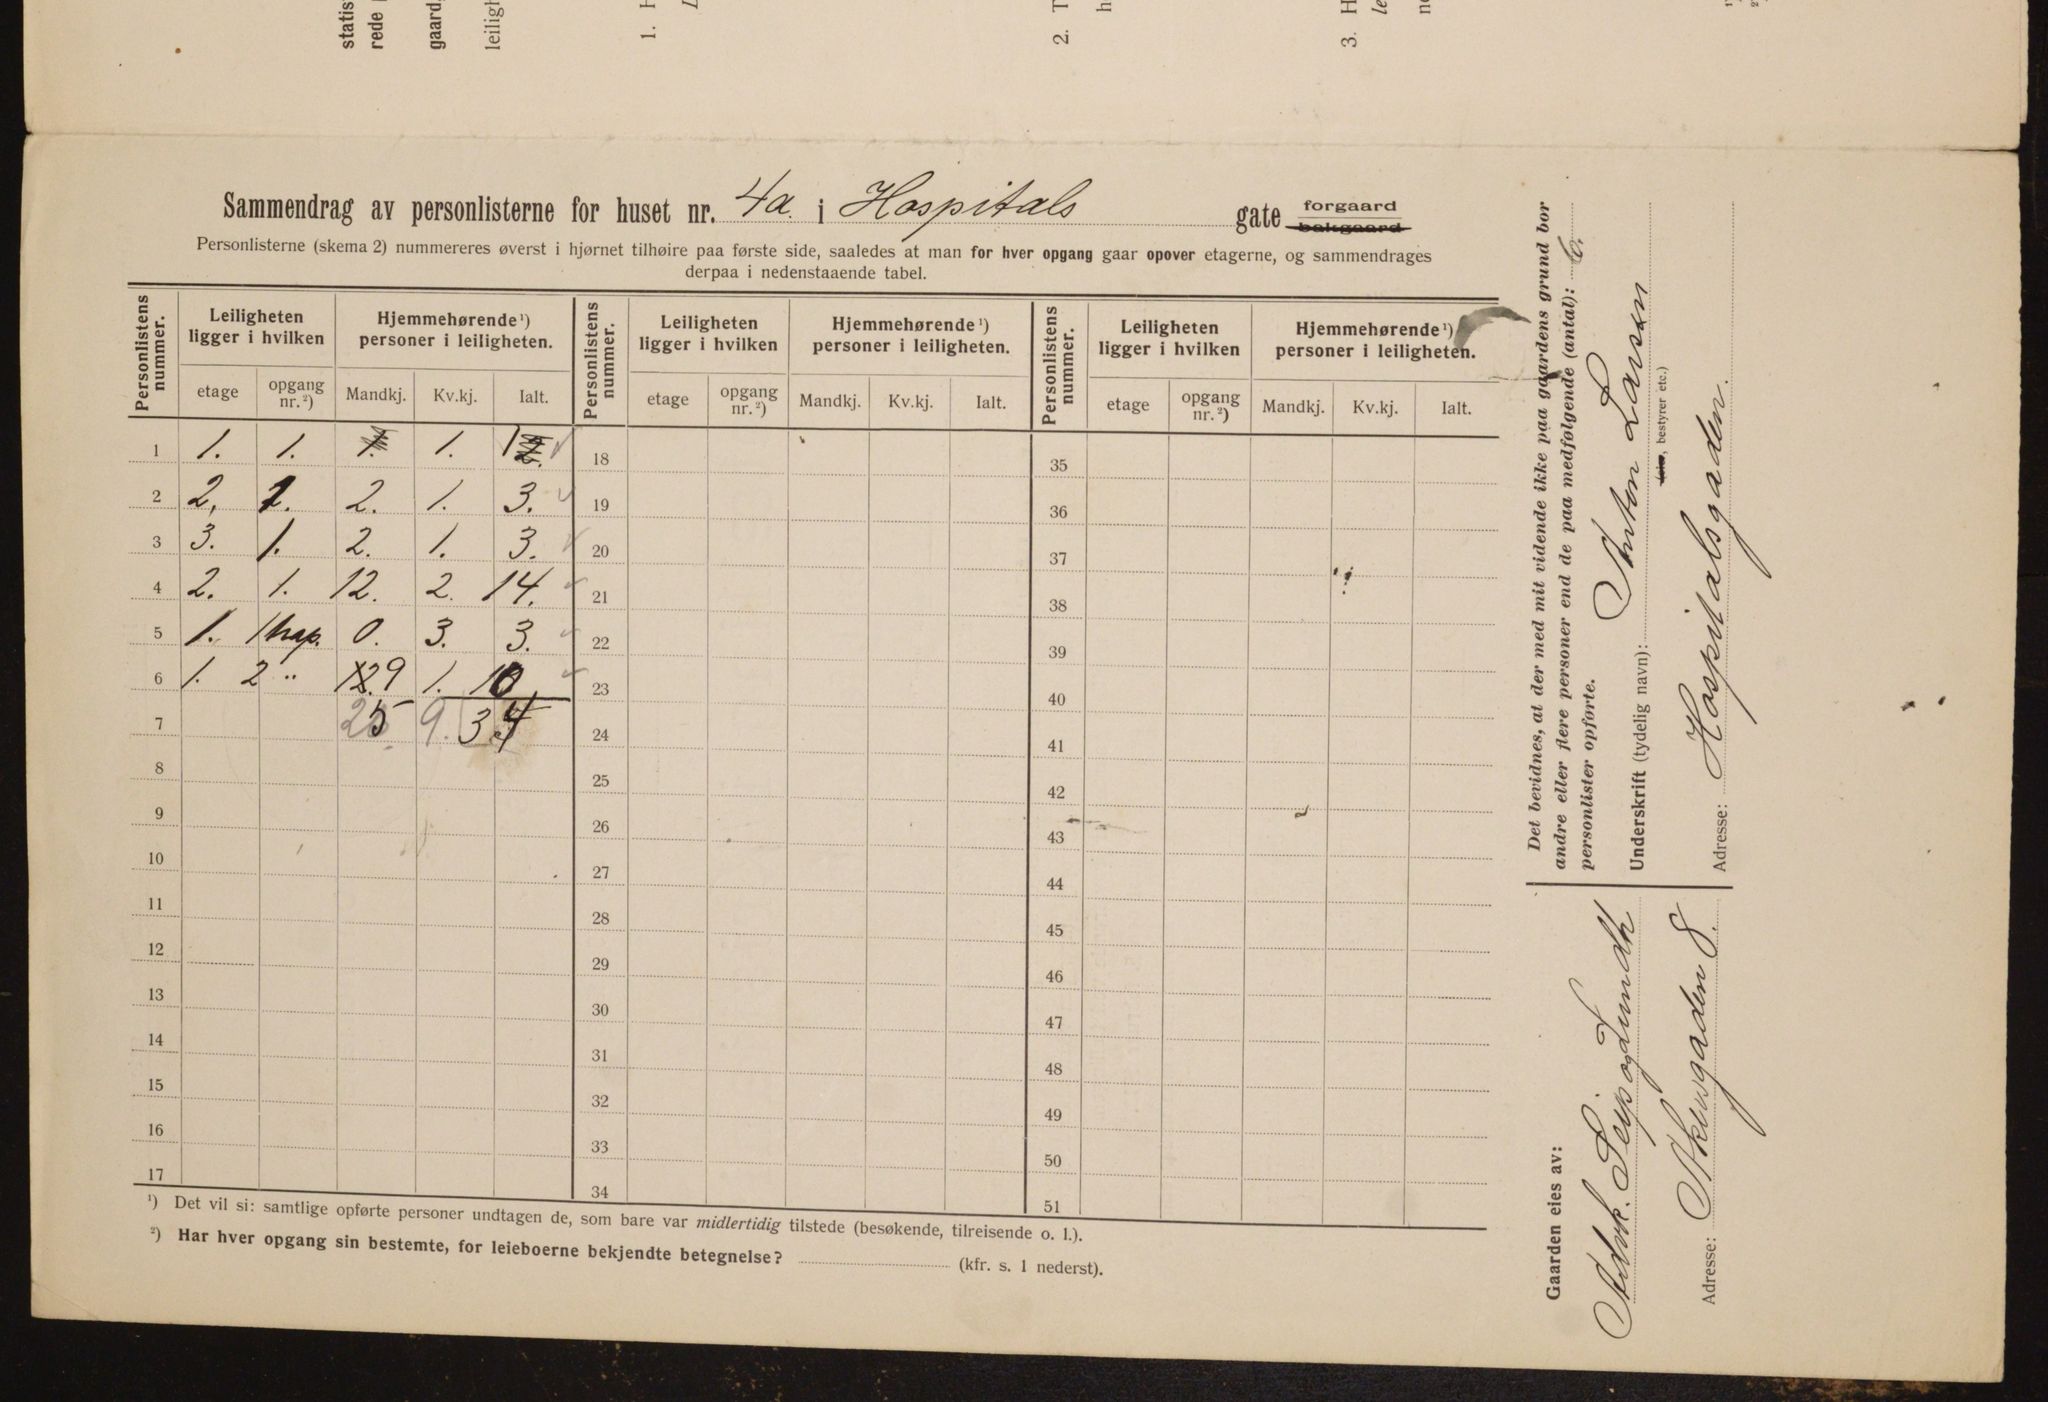 statis
rede
gaard
leiligh
1. H
2. T
h
3. H
le
n
Sammendrag av personlisterne for huset nr. 4a. i Hospitals gate forgaard bakgaard
Personlisterne (skema 2) nummereres øverst i hjørnet tilhøire paa første side, saaledes at man for hver opgang gaar opover etagerne, og sammendrages
derpaa i nedenstaaende tabel.
Personlistens nummer. Leiligheten ligger i hvilken Hjemmehørende ¹) personer i leiligheten. Personlistens nummer. Leiligheten ligger i hvilken Hjemmehørende ¹) personer i leiligheten. Personlistens nummer. Leiligheten ligger i hvilken Hjemmehørende ¹) personer i leiligheten.
etage opgang nr. ²) Mandkj. Kv.kj. Ialt. etage opgang nr. ²) Mandkj. Kv.kj. Ialt. etage opgang nr. ²) Mandkj. Kv.kj. Ialt.
1 1. 1. 1. 1. 1 2. 18 35
2 2. 1. 2. 1. 3. 19 36
3 3. 1. 2. 1. 3. 20 37
4 2. 1. 12. 2. 14. 21 38
5 1. 1 trap. 0. 3. 3. 22 39
6 1. 2 " 12. 9 1. 10 23 40
7 25 9. 34 24 41
8 25 42
9 26 43
10 27 44
11 28 45
12 29 46
13 30 47
14 31 48
15 32 49
16 33 50
17 34 51
¹) Det vil si: samtlige opførte personer undtagen de, som bare var midlertidig tilstede (besøkende, tilreisende o. l.).
²) Har hver opgang sin bestemte, for leieboerne bekjendte betegnelse? (kfr. s. 1 nederst).
Det bevidnes, at der med mit vidende ikke paa gaardens grund bor
andre eller flere personer end de paa medfølgende (antal): 6.
personlister opførte.
Underskrift (tydelig navn): Anton Larsen
eier, bestyrer etc.)
Adresse: Hospitalsgaden.
Gaarden eies av:
Advk. Seip og Lundh
Adresse: Akersgaden 8.